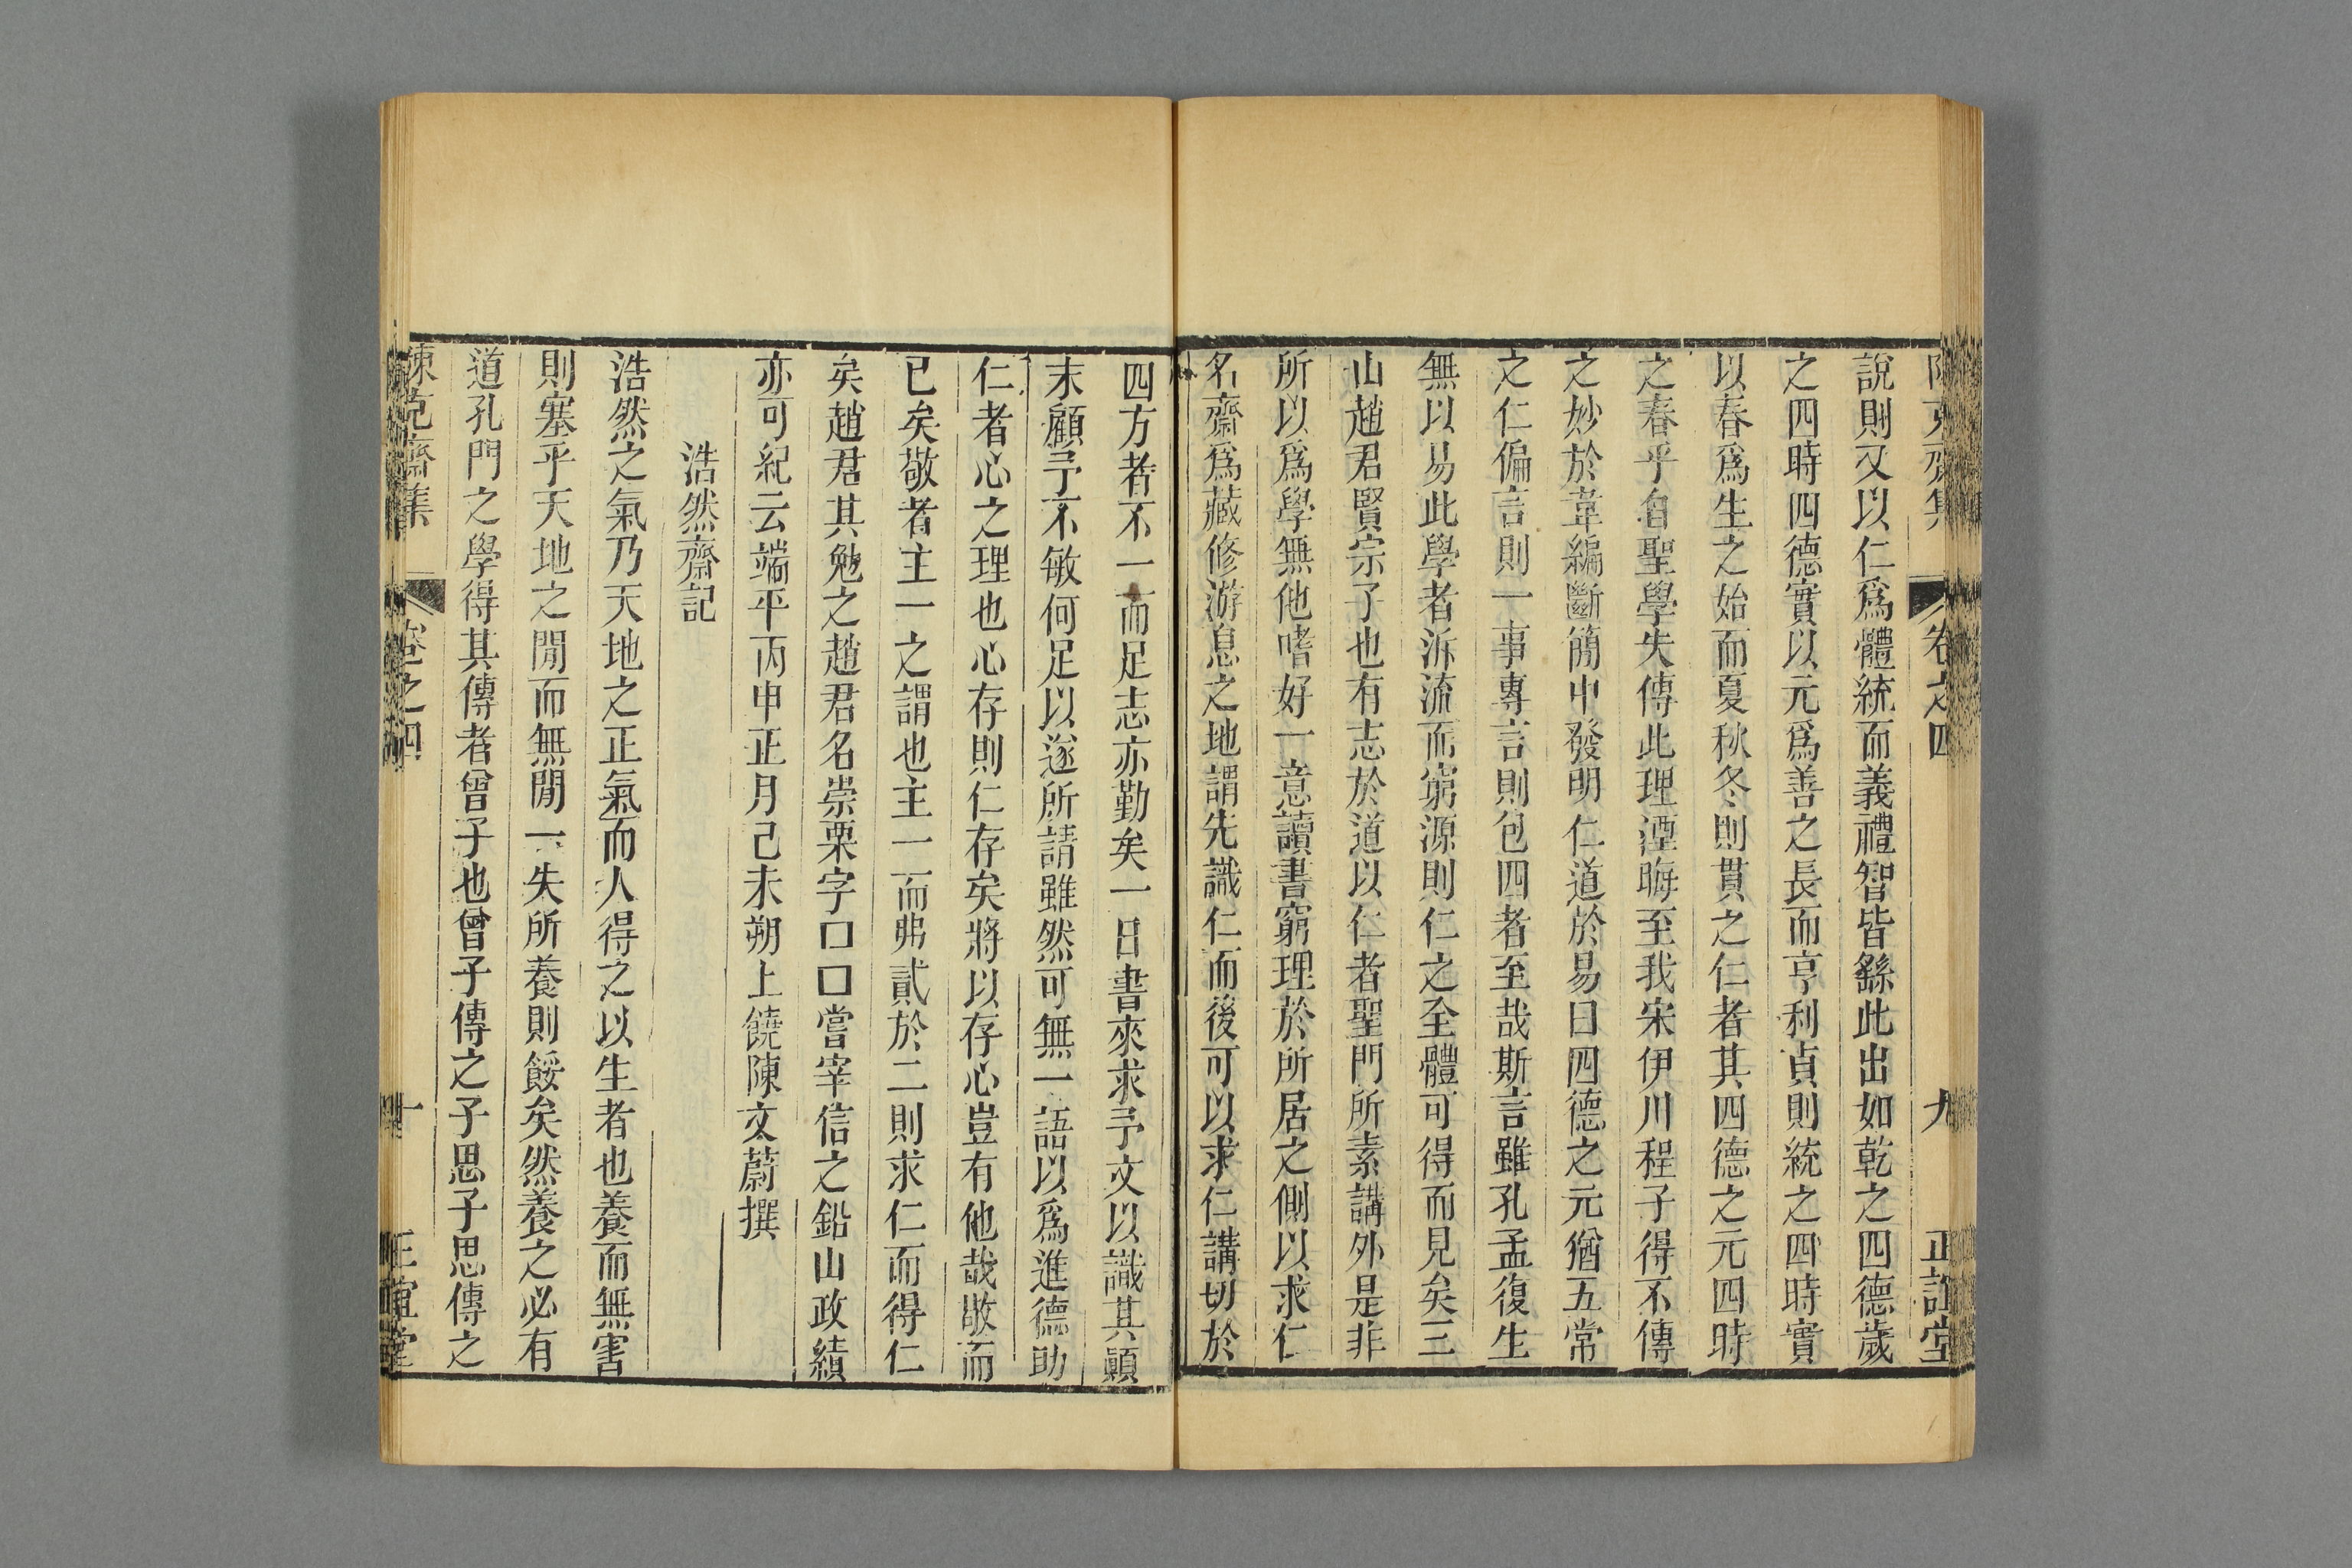 陳克齋集 卷之四 九 正誼堂
說則又以仁爲體統而義禮智皆繇此出如乾之四德歲
之四時四德實以元爲善之長而亨利貞則統之四時實
以春爲生之始而夏秋冬則貫之仁者其四德之元四時
之春乎自聖學失傳此理湮晦至我宋伊川程子得不傳
之妙於韋編斷簡中發明仁道於易曰四德之元猶五常
之仁偏言則一事專言則包四者至哉斯言雖孔孟復生
無以易此學者泝流而窮源則仁之全體可得而見矣三
山趙君賢宗子也有志於道以仁者聖門所素講外是非
所以爲學無他嗜好一意讀書窮理於所居之側以求仁
名齋爲藏修游息之地謂先識仁而後可以求仁講切於
四方者不一而足志亦勤矣一日書來求予文以識其顚
末顧予不敏何足以遂所請雖然可無一語以爲進德助
仁者心之理也心存則仁存矣將以存心豈有他哉敬而
已矣敬者主一之謂也主一而弗貳於二則求仁而得仁
矣趙君其勉之趙君名崇栗字□□嘗宰信之鉛山政績
亦可紀云端平丙申正月己未朔上饒陳文蔚撰
浩然齋記
浩然之氣乃天地之正氣而人得之以生者也養而無害
則塞乎天地之閒而無閒一失所養則餒矣然養之必有
道孔門之學得其傳者曾子也曾子傳之子思子思傳之
陳克齋集 卷之四 十 正誼堂